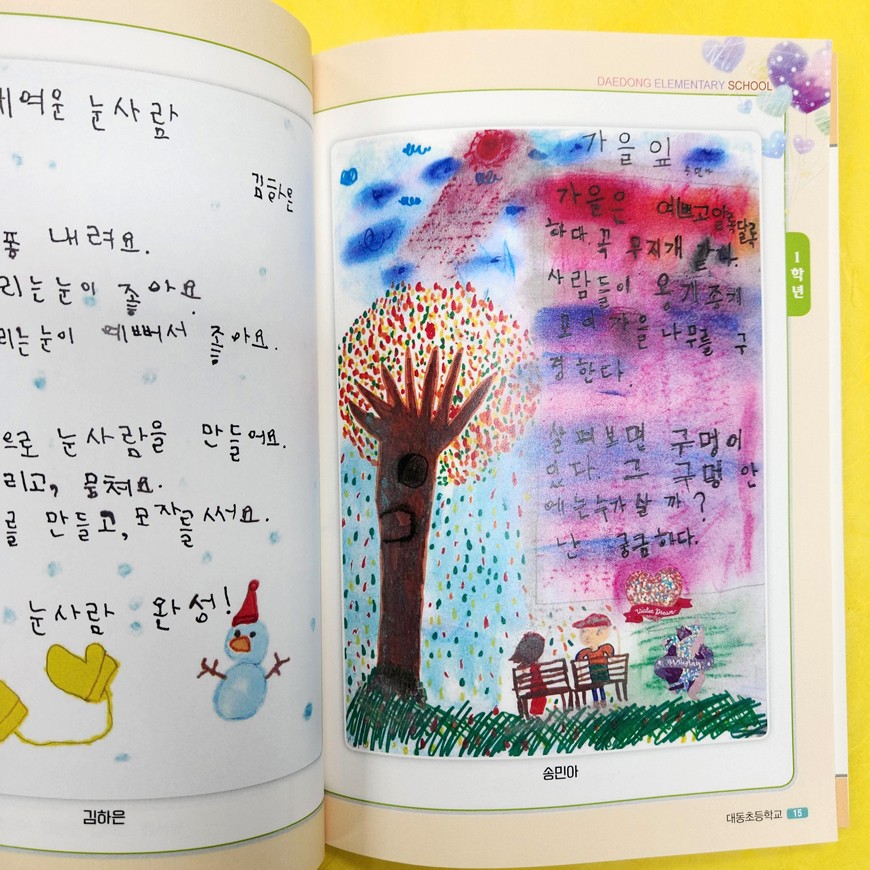 여운 눈사람
김하은
내려요.
리는 눈이 좋아요
리는 눈이 예뻐서 좋아요.
으로 눈사람을 만들어요.
리고, 뭉쳐요.
를 만들고, 모자를 써요.
눈사람 완성!
김하은
DAEDONG ELEMENTARY SCHOOL
1학년
가을 잎
송민아
가을은 예쁘고 알록달록
하다. 꼭 무지개 같다.
사람들이 옹기종기
모여 가을 나무를 구
경한다.
살펴보면 구멍이
있다. 그 구멍 안
에는 누가 살까?
난 궁금하다.
송민아
대동초등학교 15